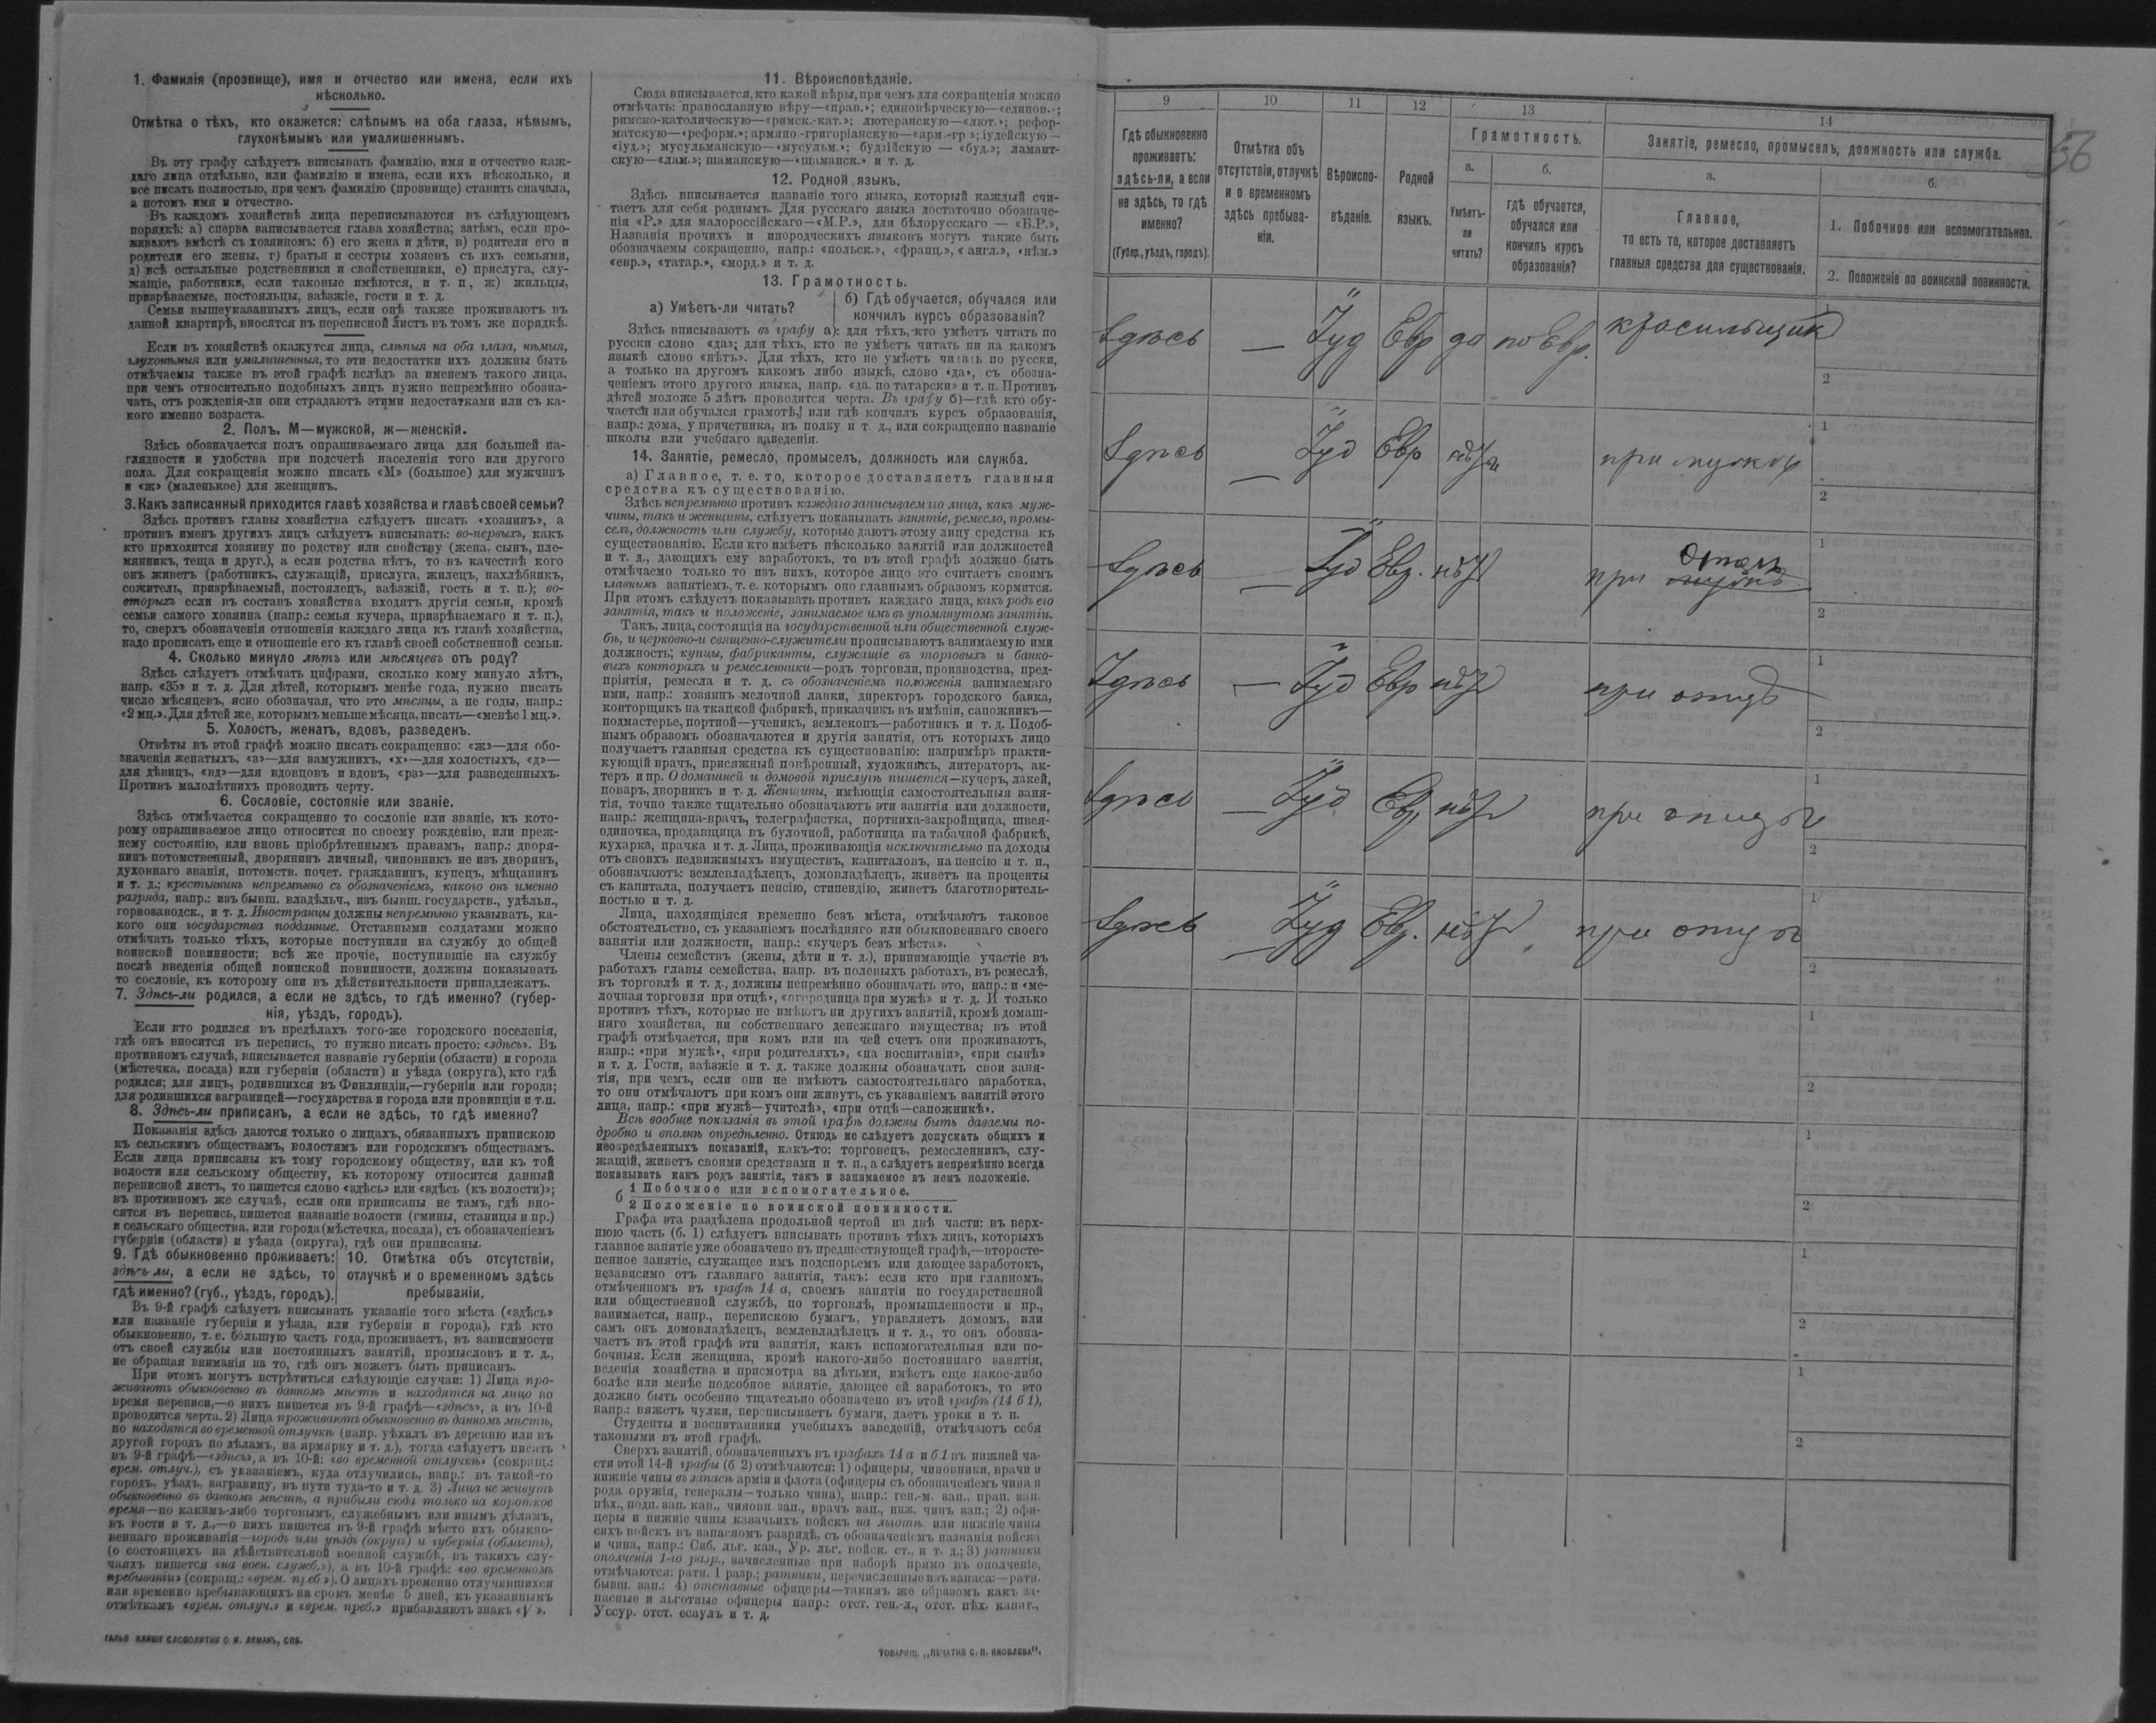 1. Фамилія (прозвище), имя и отчество или имена, если ихъ
нѣсколько.
Отмѣтка о тѣхъ, кто окажется: слѣпымъ на оба глаза, нѣмымъ,
глухонѣмымъ или умалишеннымъ.
Въ эту графу слѣдуетъ вписывать фамилію, имя и отчество каж-
даго лица отдѣльно, или фамилію и имена, если ихъ нѣсколько, и
все писать полностью, при чемъ фамилію (прозвище) ставить сначала,
а потомъ имя и отчество.
Въ каждомъ хозяйствѣ лица переписываются въ слѣдующемъ
порядкѣ: а) сперва записывается глава хозяйства; затѣмъ, если про-
живаютъ вмѣстѣ съ хозяиномъ: б) его жена и дѣти, в) родители его и
родители его жены, г) братья и сестры хозяевъ съ ихъ семьями,
д) всѣ остальные родственники и свойственники, е) прислуга, слу-
жащіе, работники, если таковые имѣются, и т. п., ж) жильцы,
призрѣваемые, постояльцы, заѣзжіе, гости и т. д.
Семьи вышеуказанныхъ лицъ, если онѣ также проживаютъ въ
данной квартирѣ, вносятся въ переписной листъ въ томъ же порядкѣ.
Если въ хозяйствѣ окажутся лица, слѣпыя на оба глаза, нѣмыя,
глухонѣмыя или умалишенныя, то эти недостатки ихъ должны быть
отмѣчаемы также въ этой графѣ вслѣдъ за именемъ такого лица,
при чемъ относительно подобныхъ лицъ нужно непремѣнно обозна-
чать, отъ рожденія-ли они страдаютъ этими недостатками или съ ка-
кого именно возраста.
2. Полъ. М—мужской, ж—женскій.
Здѣсь обозначается полъ опрашиваемаго лица для большей на-
глядности и удобства при подсчетѣ населенія того или другого
пола. Для сокращенія можно писать «М» (большое) для мужчинъ
и «ж» (маленькое) для женщинъ.
3. Какъ записанный приходится главѣ хозяйства и главѣ своей семьи?
Здѣсь противъ главы хозяйства слѣдуетъ писать «хозяинъ», а
противъ именъ другихъ лицъ слѣдуетъ вписывать: во-первыхъ, какъ
кто приходится хозяину по родству или свойству (жена, сынъ, пле-
мянникъ, теща и друг.), а если родства нѣтъ, то въ качествѣ кого
онъ живетъ (работникъ, служащій, прислуга, жилецъ, нахлѣбникъ,
сожитель, призрѣваемый, постоялецъ, заѣзжій, гость и т. п.); во-
вторыхъ если въ составъ хозяйства входятъ другія семьи, кромѣ
семьи самого хозяина (напр.: семья кучера, призрѣваемаго и т. п.),
то, сверхъ обозначенія отношенія каждаго лица къ главѣ хозяйства,
надо прописать еще и отношеніе его къ главѣ своей собственной семьи.
4. Сколько минуло лѣтъ или мѣсяцевъ отъ роду?
Здѣсь слѣдуетъ отмѣчать цифрами, сколько кому минуло лѣтъ,
напр. «35» и т. д. Для дѣтей, которымъ менѣе года, нужно писать
число мѣсяцевъ, ясно обозначая, что это мѣсяцы, а не годы, напр.:
«2 мц.». Для дѣтей же, которымъ меньше мѣсяца, писать—«менѣе 1 мц.».
5. Холостъ, женатъ, вдовъ, разведенъ.
Отвѣты въ этой графѣ можно писать сокращенно: «ж»—для обо-
значенія женатыхъ, «з»—для замужнихъ, «х»—для холостыхъ, «д»—
для дѣвицъ, «вд»—для вдовцовъ и вдовъ, «рз»—для разведенныхъ.
Противъ малолѣтнихъ проводить черту.
6. Сословіе, состояніе или званіе.
Здѣсь отмѣчается сокращенно то сословіе или званіе, къ кото-
рому опрашиваемое лицо относится по своему рожденію, или преж-
нему состоянію, или вновь пріобрѣтеннымъ правамъ, напр.: дворя-
нинъ потомственный, дворянинъ личный, чиновникъ не изъ дворянъ,
духовнаго званія, потомств. почет. гражданинъ, купецъ, мѣщанинъ
и т. д.; крестьянинъ непремѣнно съ обозначеніемъ, какого онъ именно
разряда, напр.: изъ бывш. владѣльч., изъ бывш. государств., удѣльн.,
горнозаводск., и т. д. Иностранцы должны непремѣнно указывать, ка-
кого они государства подданные. Отставными солдатами можно
отмѣчать только тѣхъ, которые поступили на службу до общей
воинской повинности; всѣ же прочіе, поступившіе на службу
послѣ введенія общей воинской повинности, должны показывать
то сословіе, къ которому они въ дѣйствительности принадлежатъ.
7. Здѣсь-ли родился, а если не здѣсь, то гдѣ именно? (губер-
нія, уѣздъ, городъ).
Если кто родился въ предѣлахъ того-же городского поселенія,
гдѣ онъ вносится въ перепись, то нужно писать просто: «здѣсь». Въ
противномъ случаѣ, вписывается названіе губерніи (области) и города
(мѣстечка, посада) или губерніи (области) и уѣзда (округа), кто гдѣ
родился; для лицъ, родившихся въ Финляндіи,—губерніи или города;
для родившихся заграницей—государства и города или провинціи и т.п.
8. Здѣсь-ли приписанъ, а если не здѣсь, то гдѣ именно?
Показанія здѣсь даются только о лицахъ, обязанныхъ припискою
къ сельскимъ обществамъ, волостямъ или городскимъ обществамъ.
Если лица приписаны къ тому городскому обществу, или къ той
волости или сельскому обществу, къ которому относится данный
переписной листъ, то пишется слово «здѣсь» или «здѣсь (къ волости)»;
въ противномъ же случаѣ, если они приписаны не тамъ, гдѣ вно-
сятся въ перепись, пишется названіе волости (гмины, станицы и пр.)
и сельскаго общества, или города (мѣстечка, посада), съ обозначеніемъ
губерніи (области) и уѣзда (округа), гдѣ они приписаны.
9. Гдѣ обыкновенно проживаетъ:
здѣсь-ли, а если не здѣсь, то
гдѣ именно? (губ., уѣздъ, городъ).
10. Отмѣтка объ отсутствіи,
отлучкѣ и о временномъ здѣсь
пребываніи.
Въ 9-й графѣ слѣдуетъ вписывать указаніе того мѣста («здѣсь»
или названіе губерніи и уѣзда, или губерніи и города), гдѣ кто
обыкновенно, т. е. большую часть года, проживаетъ, въ зависимости
отъ своей службы или постоянныхъ занятій, промысловъ и т. д.,
не обращая вниманія на то, гдѣ онъ можетъ быть приписанъ.
При этомъ могутъ встрѣтиться слѣдующіе случаи: 1) Лица про-
живаютъ обыкновенно въ данномъ мѣстѣ и находятся на лицо во
время переписи,—о нихъ пишется въ 9-й графѣ—«здѣсь», а въ 10-й
проводится черта. 2) Лица проживаютъ обыкновенно въ данномъ мѣстѣ,
но находятся во временной отлучкѣ (напр. уѣхалъ въ деревню или въ
другой городъ по дѣламъ, на ярмарку и т. д.), тогда слѣдуетъ писать
въ 9-й графѣ—«здѣсь», а въ 10-й: «во временной отлучкѣ» (сокращ.:
врем. отлуч.), съ указаніемъ, куда отлучились, напр.: въ такой-то
городъ, уѣздъ, заграницу, въ пути туда-то и т. д. 3) Лица не живутъ
обыкновенно въ данномъ мѣстѣ, а прибыли сюда только на короткое
время—по какимъ-либо торговымъ, служебнымъ или инымъ дѣламъ,
въ гости и т. д.,—о нихъ пишется въ 9-й графѣ мѣсто ихъ обыкно-
веннаго проживанія—городъ или уѣздъ (округъ) и губернія (область),
(о состоящихъ на дѣйствительной военной службѣ, въ такихъ слу-
чаяхъ пишется «на воен. служб.»), а въ 10-й графѣ: «во временномъ
пребываніи» (сокращ.: «врем. преб.»). О лицахъ временно отлучившихся
или временно пребывающихъ на срокъ менѣе 5 дней, къ указаннымъ
отмѣткамъ «врем. отлуч.» и «врем. преб.» прибавляютъ знакъ «V».
СЛОВОЛИТНИ О. И. ЛЕМАНЪ, СПБ.
11. Вѣроисповѣданіе.
Сюда вписывается, кто какой вѣры, при чемъ для сокращенія можно
отмѣчать: православную вѣру—«прав.»; единовѣрческую—«единов.»;
римско-католическую—«римск.-кат.»; лютеранскую—«лют.»; рефор-
матскую—«реформ.»; армяно-григоріанскую—«арм.-гр.»; іудейскую—
«іуд.»; мусульманскую—«мусульм.»; буддійскую — «буд.»; ламаит-
скую—«лам.»; шаманскую—«шаманск.» и т. д.
12. Родной языкъ.
Здѣсь вписывается названіе того языка, который каждый счи-
таетъ для себя роднымъ. Для русскаго языка достаточно обозначе-
нія «Р.» для малороссійскаго—«М.Р.», для бѣлорусскаго — «Б.Р.»,
Названія прочихъ и инородческихъ языковъ могутъ также быть
обозначаемы сокращенно, напр.: «польск.», «франц.», «англ.», «нѣм.»
«евр.», «татар.», «морд.» и т. д.
13. Грамотность.
а) Умѣетъ-ли читать?
б) Гдѣ обучается, обучался или
кончилъ курсъ образованія?
Здѣсь вписываютъ въ графу а): для тѣхъ, кто умѣетъ читать по
русски слово «да»; для тѣхъ, кто не умѣетъ читать ни на какомъ
языкѣ слово «нѣтъ». Для тѣхъ, кто не умѣетъ читать по русски,
а только на другомъ какомъ либо языкѣ, слово «да», съ обозна-
ченіемъ этого другого языка, напр. «да, по татарски» и т. п. Противъ
дѣтей моложе 5 лѣтъ проводится черта. Въ графу б)—гдѣ кто обу-
чается или обучался грамотѣ, или гдѣ кончилъ курсъ образованія,
напр.: дома, у причетника, въ полку и т. д., или сокращенно названіе
школы или учебнаго заведенія.
14. Занятіе, ремесло, промыселъ, должность или служба.
а) Главное, т. е. то, которое доставляетъ главныя
средства къ существованію.
Здѣсь непремѣнно противъ каждаго записываемаго лица, какъ муж-
чины, такъ и женщины, слѣдуетъ показывать занятіе, ремесло, промы-
селъ, должность или службу, которые даютъ этому лицу средства къ
существованію. Если кто имѣетъ нѣсколько занятій или должностей
и т. д., дающихъ ему заработокъ, то въ этой графѣ должно быть
отмѣчаемо только то изъ нихъ, которое лицо это считаетъ своимъ
главнымъ занятіемъ, т. е. которымъ оно главнымъ образомъ кормится.
При этомъ слѣдуетъ показывать противъ каждаго лица, какъ родъ его
занятія, такъ и положеніе, занимаемое имъ въ упомянутомъ занятіи.
Такъ, лица, состоящія на государственной или общественной служ-
бѣ, и церковно-и священно-служители прописываютъ занимаемую ими
должность; купцы, фабриканты, служащіе въ торговыхъ и банко-
выхъ конторахъ и ремесленники—родъ торговли, производства, пред-
пріятія, ремесла и т. д. съ обозначеніемъ положенія занимаемаго
ими, напр.: хозяинъ мелочной лавки, директоръ городского банка,
конторщикъ на ткацкой фабрикѣ, приказчикъ въ имѣніи, сапожникъ—
подмастерье, портной—ученикъ, землекопъ—работникъ и т. д. Подоб-
нымъ образомъ обозначаются и другія занятія, отъ которыхъ лицо
получаетъ главныя средства къ существованію: напримѣръ практи-
кующій врачъ, присяжный повѣренный, художникъ, литераторъ, ак-
теръ и пр. О домашней и домовой прислугѣ пишется—кучеръ, лакей,
поваръ, дворникъ и т. д. Женщины, имѣющія самостоятельныя заня-
тія, точно также тщательно обозначаютъ эти занятія или должности,
напр.: женщина-врачъ, телеграфистка, портниха-закройщица, швея-
одиночка, продавщица въ булочной, работница на табачной фабрикѣ,
кухарка, прачка и т. д. Лица, проживающія исключительно на доходы
отъ своихъ недвижимыхъ имуществъ, капиталовъ, на пенсію и т. п.,
обозначаютъ: землевладѣлецъ, домовладѣлецъ, живетъ на проценты
съ капитала, получаетъ пенсію, стипендію, живетъ благотворитель-
ностью и т. д.
Лица, находящіяся временно безъ мѣста, отмѣчаютъ таковое
обстоятельство, съ указаніемъ послѣдняго или обыкновеннаго своего
занятія или должности, напр.: «кучеръ безъ мѣста».
Члены семействъ (жены, дѣти и т. д.), принимающіе участіе въ
работахъ главы семейства, напр. въ полевыхъ работахъ, въ ремеслѣ,
въ торговлѣ и т. д., должны непремѣнно обозначать это, напр.: и «ме-
лочная торговля при отцѣ», «огородница при мужѣ» и т. д. И только
противъ тѣхъ, которые не имѣютъ ни другихъ занятій, кромѣ домаш-
няго хозяйства, ни собственнаго денежнаго имущества; въ этой
графѣ отмѣчается, при комъ или на чей счетъ они проживаютъ,
напр.: «при мужѣ», «при родителяхъ», «на воспитаніи», «при сынѣ»
и т. д. Гости, заѣзжіе и т. д. также должны обозначать свои заня-
тія, при чемъ, если они не имѣютъ самостоятельнаго заработка,
то они отмѣчаютъ при комъ они живутъ, съ указаніемъ занятій этого
лица, напр.: «при мужѣ—учителѣ», «при отцѣ—сапожникѣ».
Всѣ вообще показанія въ этой графѣ должны быть даваемы по-
дробно и вполнѣ опредѣленно. Отнюдь не слѣдуетъ допускать общихъ и
неопредѣленныхъ показаній, какъ-то: торговецъ, ремесленникъ, слу-
жащій, живетъ своими средствами и т. п., а слѣдуетъ непремѣнно всегда
показывать какъ родъ занятія, такъ и занимаемое въ немъ положеніе.
1 Побочное или вспомогательное.
б
2 Положеніе по воинской повинности.
Графа эта раздѣлена продольной чертой на двѣ части: въ верх-
нюю часть (б. 1) слѣдуетъ вписывать противъ тѣхъ лицъ, которыхъ
главное занятіе уже обозначено въ предшествующей графѣ,—второсте-
пенное занятіе, служащее имъ подспорьемъ или дающее заработокъ,
независимо отъ главнаго занятія, такъ: если кто при главномъ,
отмѣченномъ въ графѣ 14 а, своемъ занятіи по государственной
или общественной службѣ, по торговлѣ, промышленности и пр.,
занимается, напр., перепискою бумагъ, управляетъ домомъ, или
самъ онъ домовладѣлецъ, землевладѣлецъ и т. д., то онъ обозна-
чаетъ въ этой графѣ эти занятія, какъ вспомогательныя или по-
бочныя. Если женщина, кромѣ какого-либо постояннаго занятія,
веденія хозяйства и присмотра за дѣтьми, имѣетъ еще какое-либо
болѣе или менѣе подсобное занятіе, дающее ей заработокъ, то это
должно быть особенно тщательно обозначено въ этой графѣ (14 б 1),
напр.: вяжетъ чулки, переписываетъ бумаги, даетъ уроки и т. п.
Студенты и воспитанники учебныхъ заведеній, отмѣчаютъ себя
таковыми въ этой графѣ.
Сверхъ занятій, обозначенныхъ въ графахъ 14 а и б1 въ нижней ча-
сти этой 14-й графы (б 2) отмѣчаются: 1) офицеры, чиновники, врачи и
нижніе чины въ запасѣ арміи и флота (офицеры съ обозначеніемъ чина и
рода оружія, генералы—только чина), напр.: ген.-м. зап., прап. зап.
пѣх., подп. зап. кав., чиновн. зап., врачъ зап., ниж. чинъ зап.; 2) офи-
церы и нижніе чины казачьихъ войскъ на льготѣ или нижніе чины
сихъ войскъ въ запасномъ разрядѣ, съ обозначеніемъ названія войска
и чина, напр.: Сиб. льг. каз., Ур. льг. войск. ст., и т. д.; 3) ратники
ополченія 1-го разр., зачисленные при наборѣ прямо въ ополченіе,
отмѣчаются: ратн. 1 разр.; ратники, перечисленные изъ запаса:—ратн.
бывш. зап.; 4) отставные офицеры—такимъ же образомъ какъ за-
пасные и льготные офицеры напр.: отст. ген.-л., отст. пѣх. капит.,
Уссур. отст. есаулъ и т. д.
ТОВАРИЩ. „ПЕЧАТНЯ С. П. ЯКОВЛЕВА".
56
9 10 11 12 13 14
Гдѣ обыкновенно
проживаетъ:
здѣсь-ли, а если
не здѣсь, то гдѣ
именно?
(Губер., уѣздъ, городъ).
Отмѣтка объ
отсутствіи, отлучкѣ
и о временномъ
здѣсь пребыва-
ніи.
Вѣроиспо-
вѣданіе.
Родной
языкъ.
Грамотность.
а.
Умѣетъ-
ли
читать?
б.
гдѣ обучается,
обучался или
кончилъ курсъ
образованія?
Занятіе, ремесло, промыселъ, должность или служба.
а.
Главное,
то есть то, которое доставляетъ
главныя средства для существованія.
б.
1. Побочное или вспомогательное.
2. Положеніе по воинской повинности.
Здѣсь — Іуд Евр да по Евр. красильщик
1
2
Здѣсь — Іуд Евр
при
1
2
Здѣсь — Іуд Евр. нѣт при
1
2
Здѣсь — Іуд Евр нѣт при отцѣ
1
2
Здѣсь — Іуд Евр. нѣт при отцѣ
1
2
Здѣсь — Іуд Евр. нѣт при отцѣ
1
2
1
2
1
2
1
2
1
2